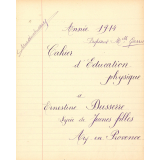 Année 1914
Cahier
d'Education
physique
Ernestine Dusserre
Lycée de Jeunes filles
Aix en Provence